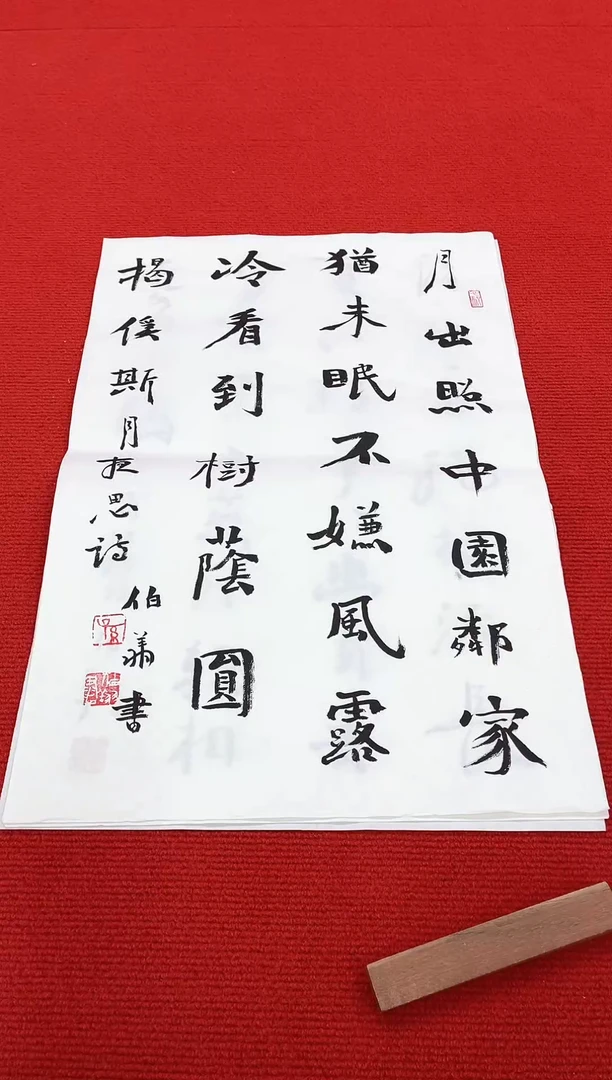 月出照中園鄰家
猶未眠不嫌風露
冷看到樹蔭圓
揭傒斯月夜思詩
伯羲書